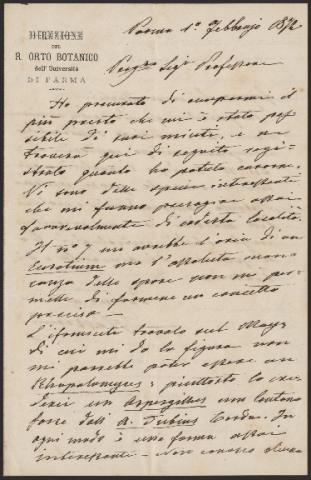 DIREZIONE
DEL
R. ORTO BOTANICO
dell'Università
DI PARMA
Parma 1° Febbrajo 1872
Preg.mo Sig.r Professore
Ho procurato di occuparmi il
più presto che mi è stato pos
sibile di suoi miceti, e ne
troverà qui di seguito regi
strato quanto ho potuto cavarne.
Vi sono delle specie interessanti
che mi fanno presagire assai
favorevolmente di codesta località.
Il n° 7 mi avrebbe l'aria di un
Eurotium ma l'assoluta man
canza delle spore non mi per
mette di formarne un concetto
preciso.
L'ifomicete trovato sul Mays
di cui mi dà la figura non
mi parrebbe poter essere un
Rhopalomyces; piuttosto lo cre
derei un Aspergillus non lontano
forse dall' A. dubius Corda. In
ogni modo è una forma assai
interessante. Non conosco